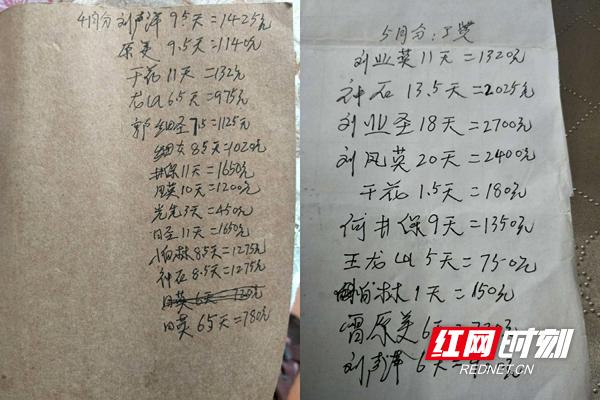 4月份刘声洋 9.5天=1425元
原美 9.5天=1140元
干花 11天=132元
龙山 6.5天=975元
郭细圣 7.5=1125元
细友 8.5天=1020元
井保 11天=1650元
凤英 10天=1200元
光先 3天=450元
日圣 11天=1650元
小柏林 8.5天=1275元
神石 8.5天=1275元
日英 6天 720元
日英 6.5天=780元
5月份:工资
刘业英 11天=1320元
神石 13.5天=2025元
刘业圣 18天=2700元
刘凤英 20天=2400元
干花 1.5天=180元
何井保 9天=1350元
王龙山 5天=750元
柏林 1天=150元
雷原美 6天=720元
刘声洋 6天=
红网时刻
REDNET.CN